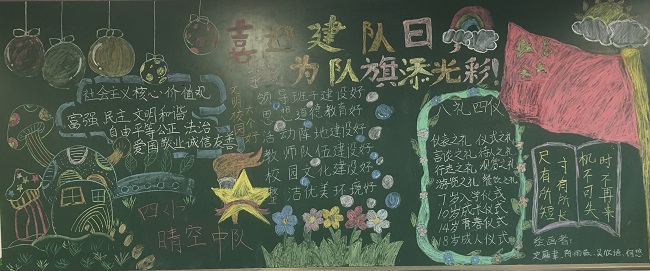 喜迎建队日
为队旗添光彩!
社会主义核心价值观
富强 民主 文明和谐
自由平等公正 法治
爱国敬业诚信友善
文明校园
六个好
领导班子建设好
思想道德教育好
活动阵地建设好
教师队伍建设好
校园文化建设好
整洁优美环境好
四小
晴空中队
八礼四仪
仪表之礼 仪式之礼
言谈之礼 待人之礼
行走之礼 观赏之礼
游览之礼 餐饮之礼
7岁入学仪式
10岁成长仪式
14岁青春仪式
18岁成人仪式
尺有所短
寸有所长
机不可失
时不再来
绘画者: